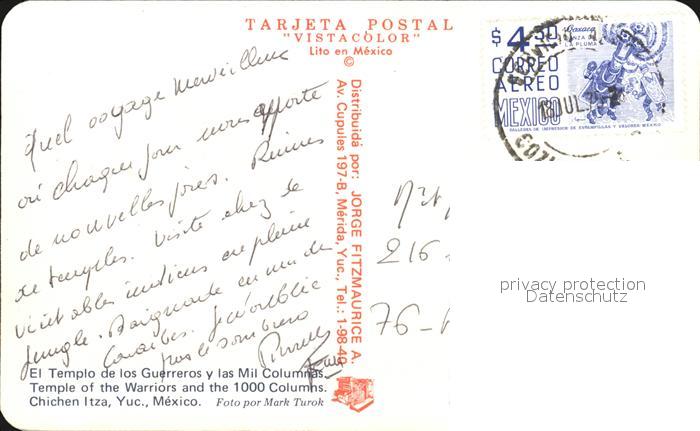 TARJETA POSTAL
"VISTACOLOR"
Lito en México
©
$4.50
Oaxaca
DANZA DE
LA PLUMA
CORREO
AEREO
MEXICO
TALLERES DE IMPRESION DE ESTAMPILLAS Y VALORES-MEXICO
JUL
COZ
Quel voyage merveilleux
où chaque jour nous apporte
de nouvelles joies. Ruines
de temples. Visite chez le
indiens en pleine
jungle. Baignade en mer des
Caraïbes. Je n'oublie
pas le sombrero
Distribuida por: JORGE FITZMAURICE A.
Av. Cupules 197-B, Mérida, Yuc., Tel.: 1-98-40
216
76-
privacy protection
Datenschutz
El Templo de los Guerreros y las Mil Columnas.
Temple of the Warriors and the 1000 Columns.
Chichen Itza, Yuc., México. Foto por Mark Turok